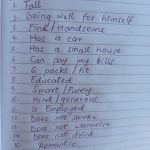 1. Tall
2. Doing well for himself
3. Fine / Handsome
4. Has a car
5. Has a small house
6. Can pay my bills
6 packs / fit
8. Educated
Smart / Funny
Kind / generous
Is Employed
Does not smoke
Does not womanise
Does not drink
Romantic